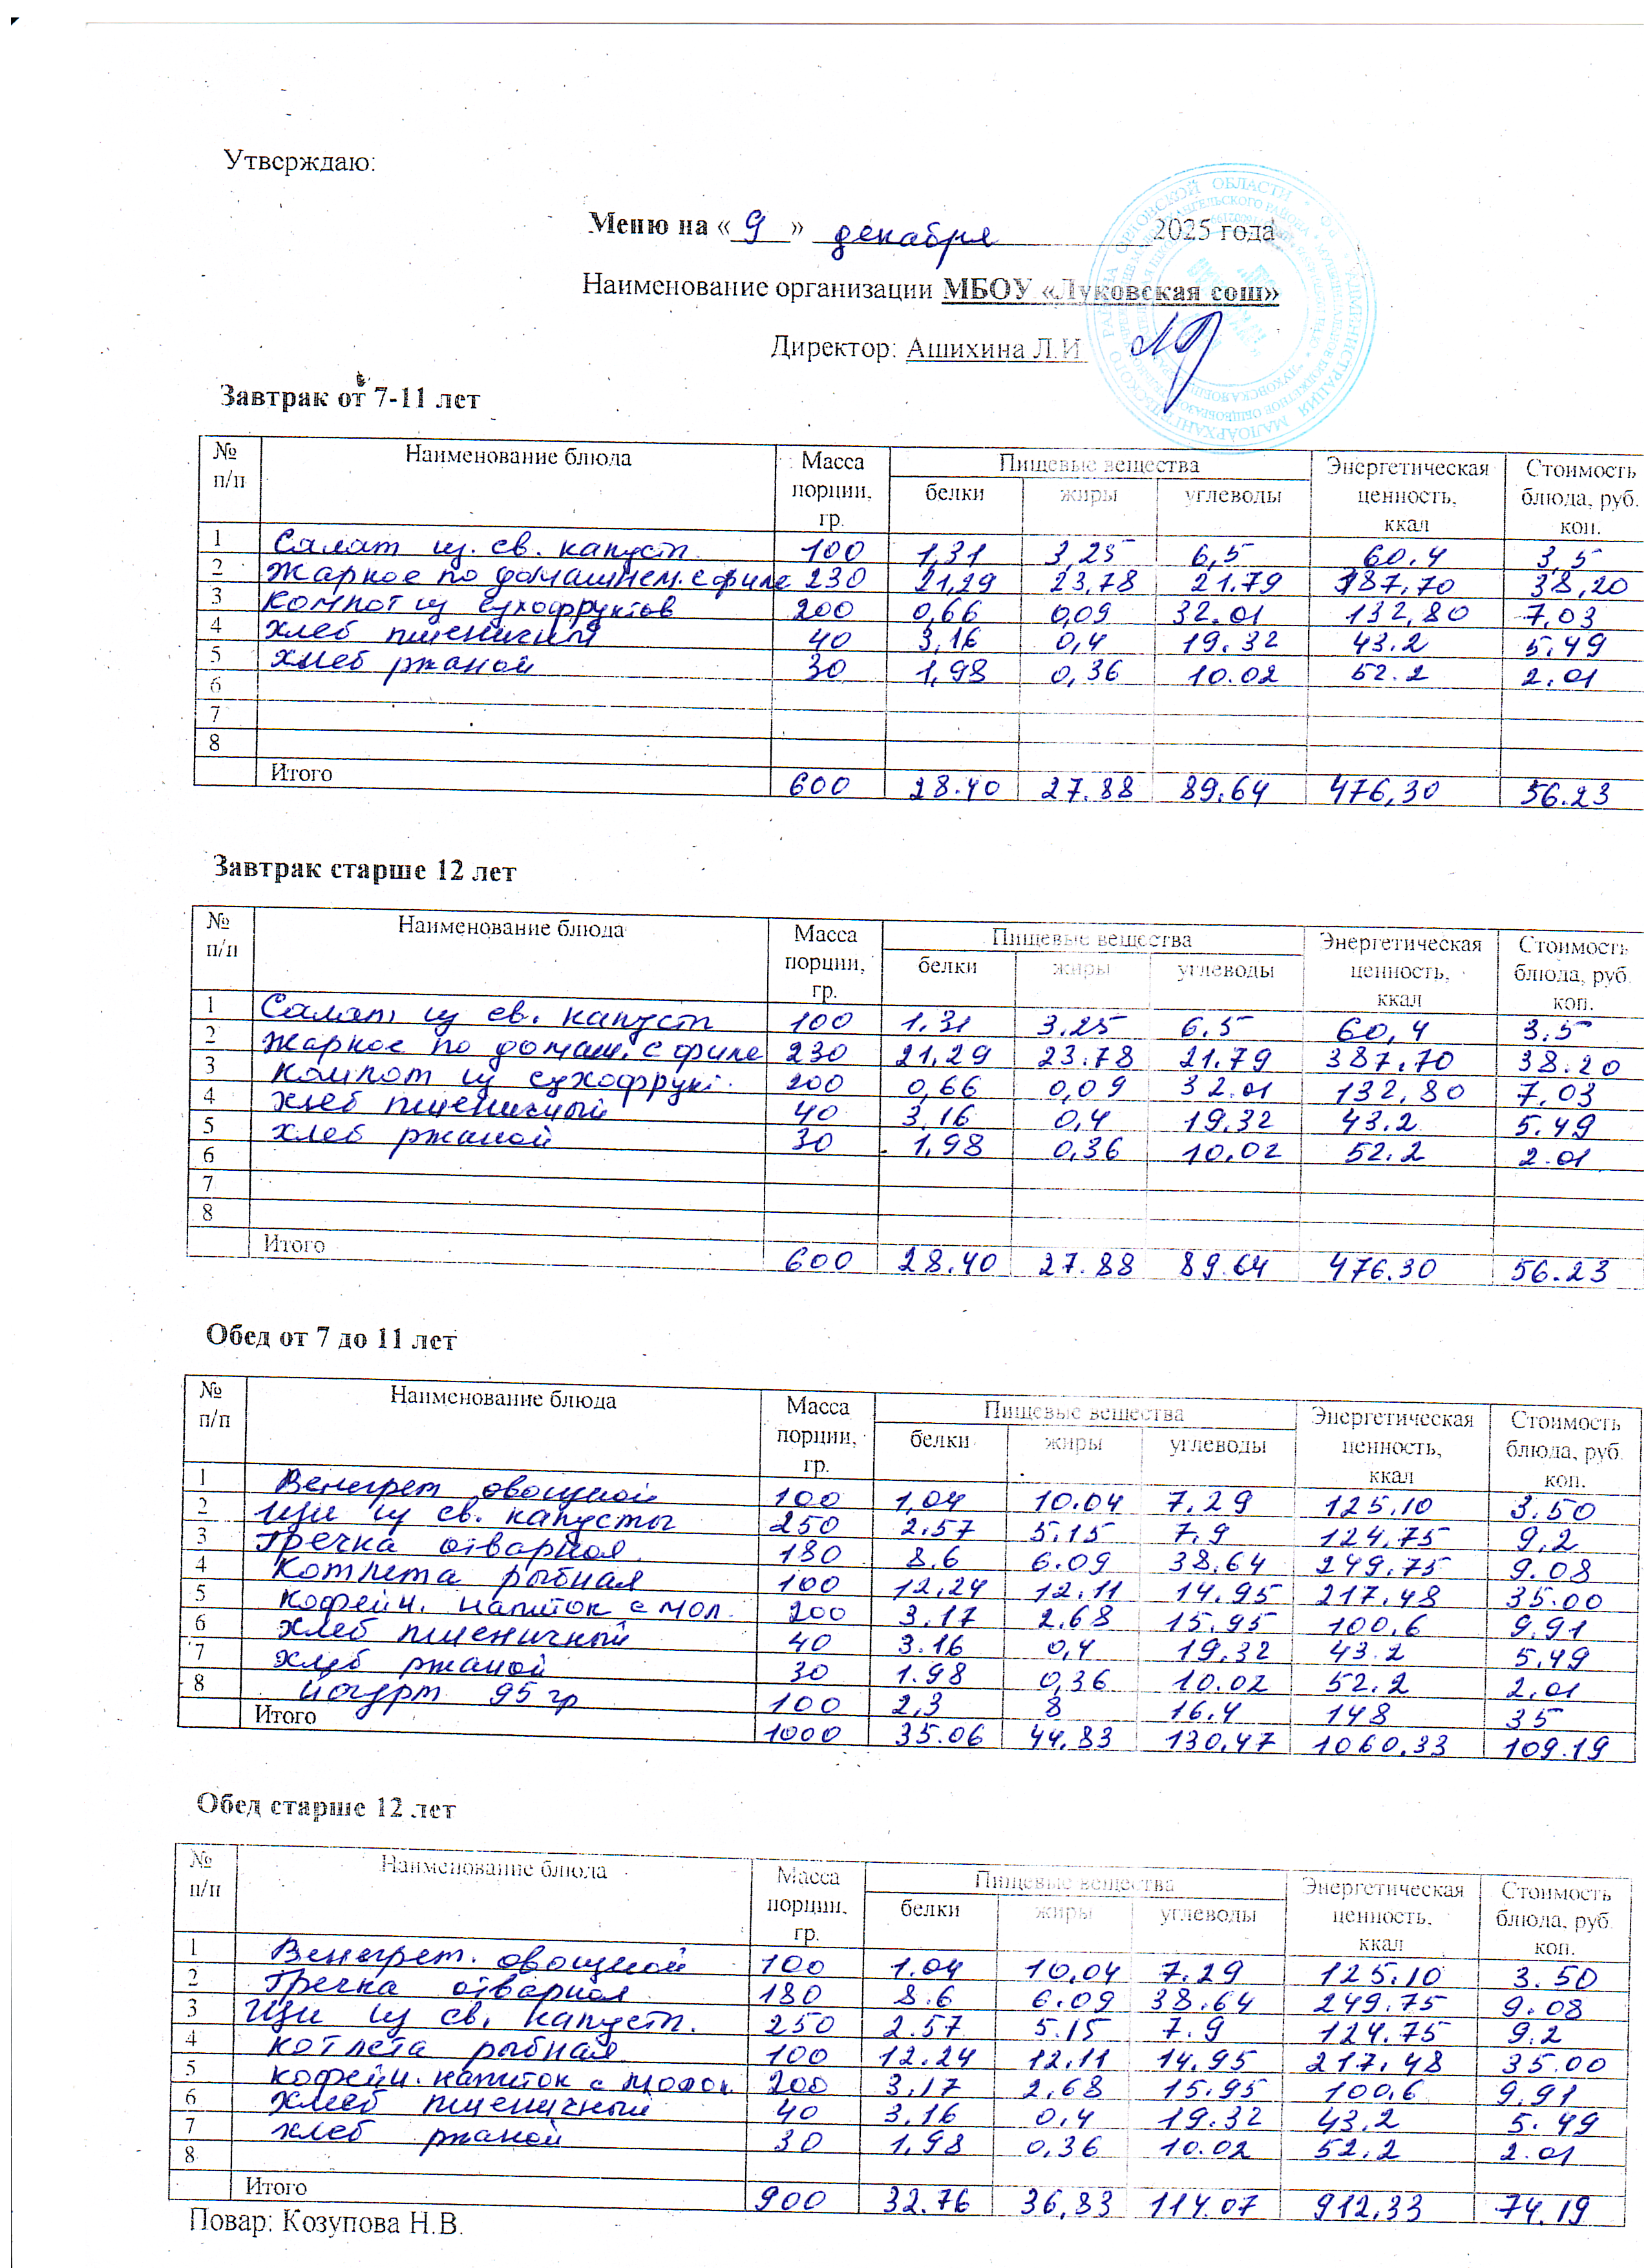 Утверждаю:
Меню на « 9 » декабря 2025 года
Наименование организации МБОУ «Луковская сош»
Директор: Ашихина Л.И
Завтрак от 7-11 лет
№ п/п Наименование блюда Масса порции, гр. Пищевые вещества белки жиры углеводы Энергетическая ценность, ккал Стоимость блюда, руб. коп.
1 Салат из св. капуст 100 1,31 3,25 6,5 60.4 3,5
2 Жаркое по домашнем. с филе 230 21,29 23,78 21.79 387,70 38,20
3 Компот из сухофруктов 200 0,66 0,09 32.01 132,80 7,03
4 хлеб пшеничный 40 3,16 0,4 19.32 43.2 5.49
5 хлеб ржаной 30 1,98 0,36 10.02 52.2 2.01
6
7
8
Итого 600 28.40 27.88 89.64 476,30 56.23
Завтрак старше 12 лет
№ п/п Наименование блюда Масса порции, гр. Пищевые вещества белки жиры углеводы Энергетическая ценность, ккал Стоимость блюда, руб. коп.
1 Салат из св. капуст 100 1.31 3.25 6.5 60,4 3.5
2 Жаркое по домаш. с филе 230 21,29 23.78 21.79 387.70 38.20
3 Компот из сухофрукт. 200 0,66 0,09 32.01 132,80 7,03
4 хлеб пшеничный 40 3,16 0,4 19,32 43.2 5.49
5 хлеб ржаной 30 1,98 0,36 10,02 52.2 2.01
6
7
8
Итого 600 28.40 27.88 89.64 476.30 56.23
Обед от 7 до 11 лет
№ п/п Наименование блюда Масса порции, гр. Пищевые вещества белки жиры углеводы Энергетическая ценность, ккал Стоимость блюда, руб. коп.
1 Венегрет овощной 100 1,04 10.04 7.29 125,10 3.50
2 Щи из св. капусты 250 2.57 5.15 7.9 124,75 9,2
3 Гречка отварная 180 8.6 6.09 38.64 249,75 9.08
4 Котлета рыбная 100 12,24 12.11 14.95 217,48 35.00
5 Кофейн. напиток с мол. 200 3.17 2,68 15.95 100,6 9.91
6 хлеб пшеничный 40 3.16 0,4 19,32 43.2 5,49
7 хлеб ржаной 30 1.98 0,36 10.02 52.2 2,01
8 йогурт 95 гр 100 2,3 8 16.4 148 35
Итого 1000 35.06 44.83 130,47 1060,33 109.19
Обед старше 12 лет
№ п/п Наименование блюда Масса порции, гр. Пищевые вещества белки жиры углеводы Энергетическая ценность, ккал Стоимость блюда, руб. коп.
1 Венегрет. овощной 100 1.04 10,04 7.29 125.10 3.50
2 Гречка отварная 180 8.6 6.09 38.64 249.75 9.08
3 Щи из св. капуст. 250 2.57 5.15 7.9 124.75 9.2
4 котлета рыбная 100 12.24 12,11 14.95 217,48 35.00
5 кофейн. напиток с молок 200 3,17 2,68 15.95 100,6 9,91
6 хлеб пшеничный 40 3,16 0,4 19.32 43,2 5.49
7 хлеб ржаной 30 1,98 0,36 10.02 52,2 2.01
8
Итого 900 32.76 36,83 114.07 912,33 74.19
Повар: Козупова Н.В.